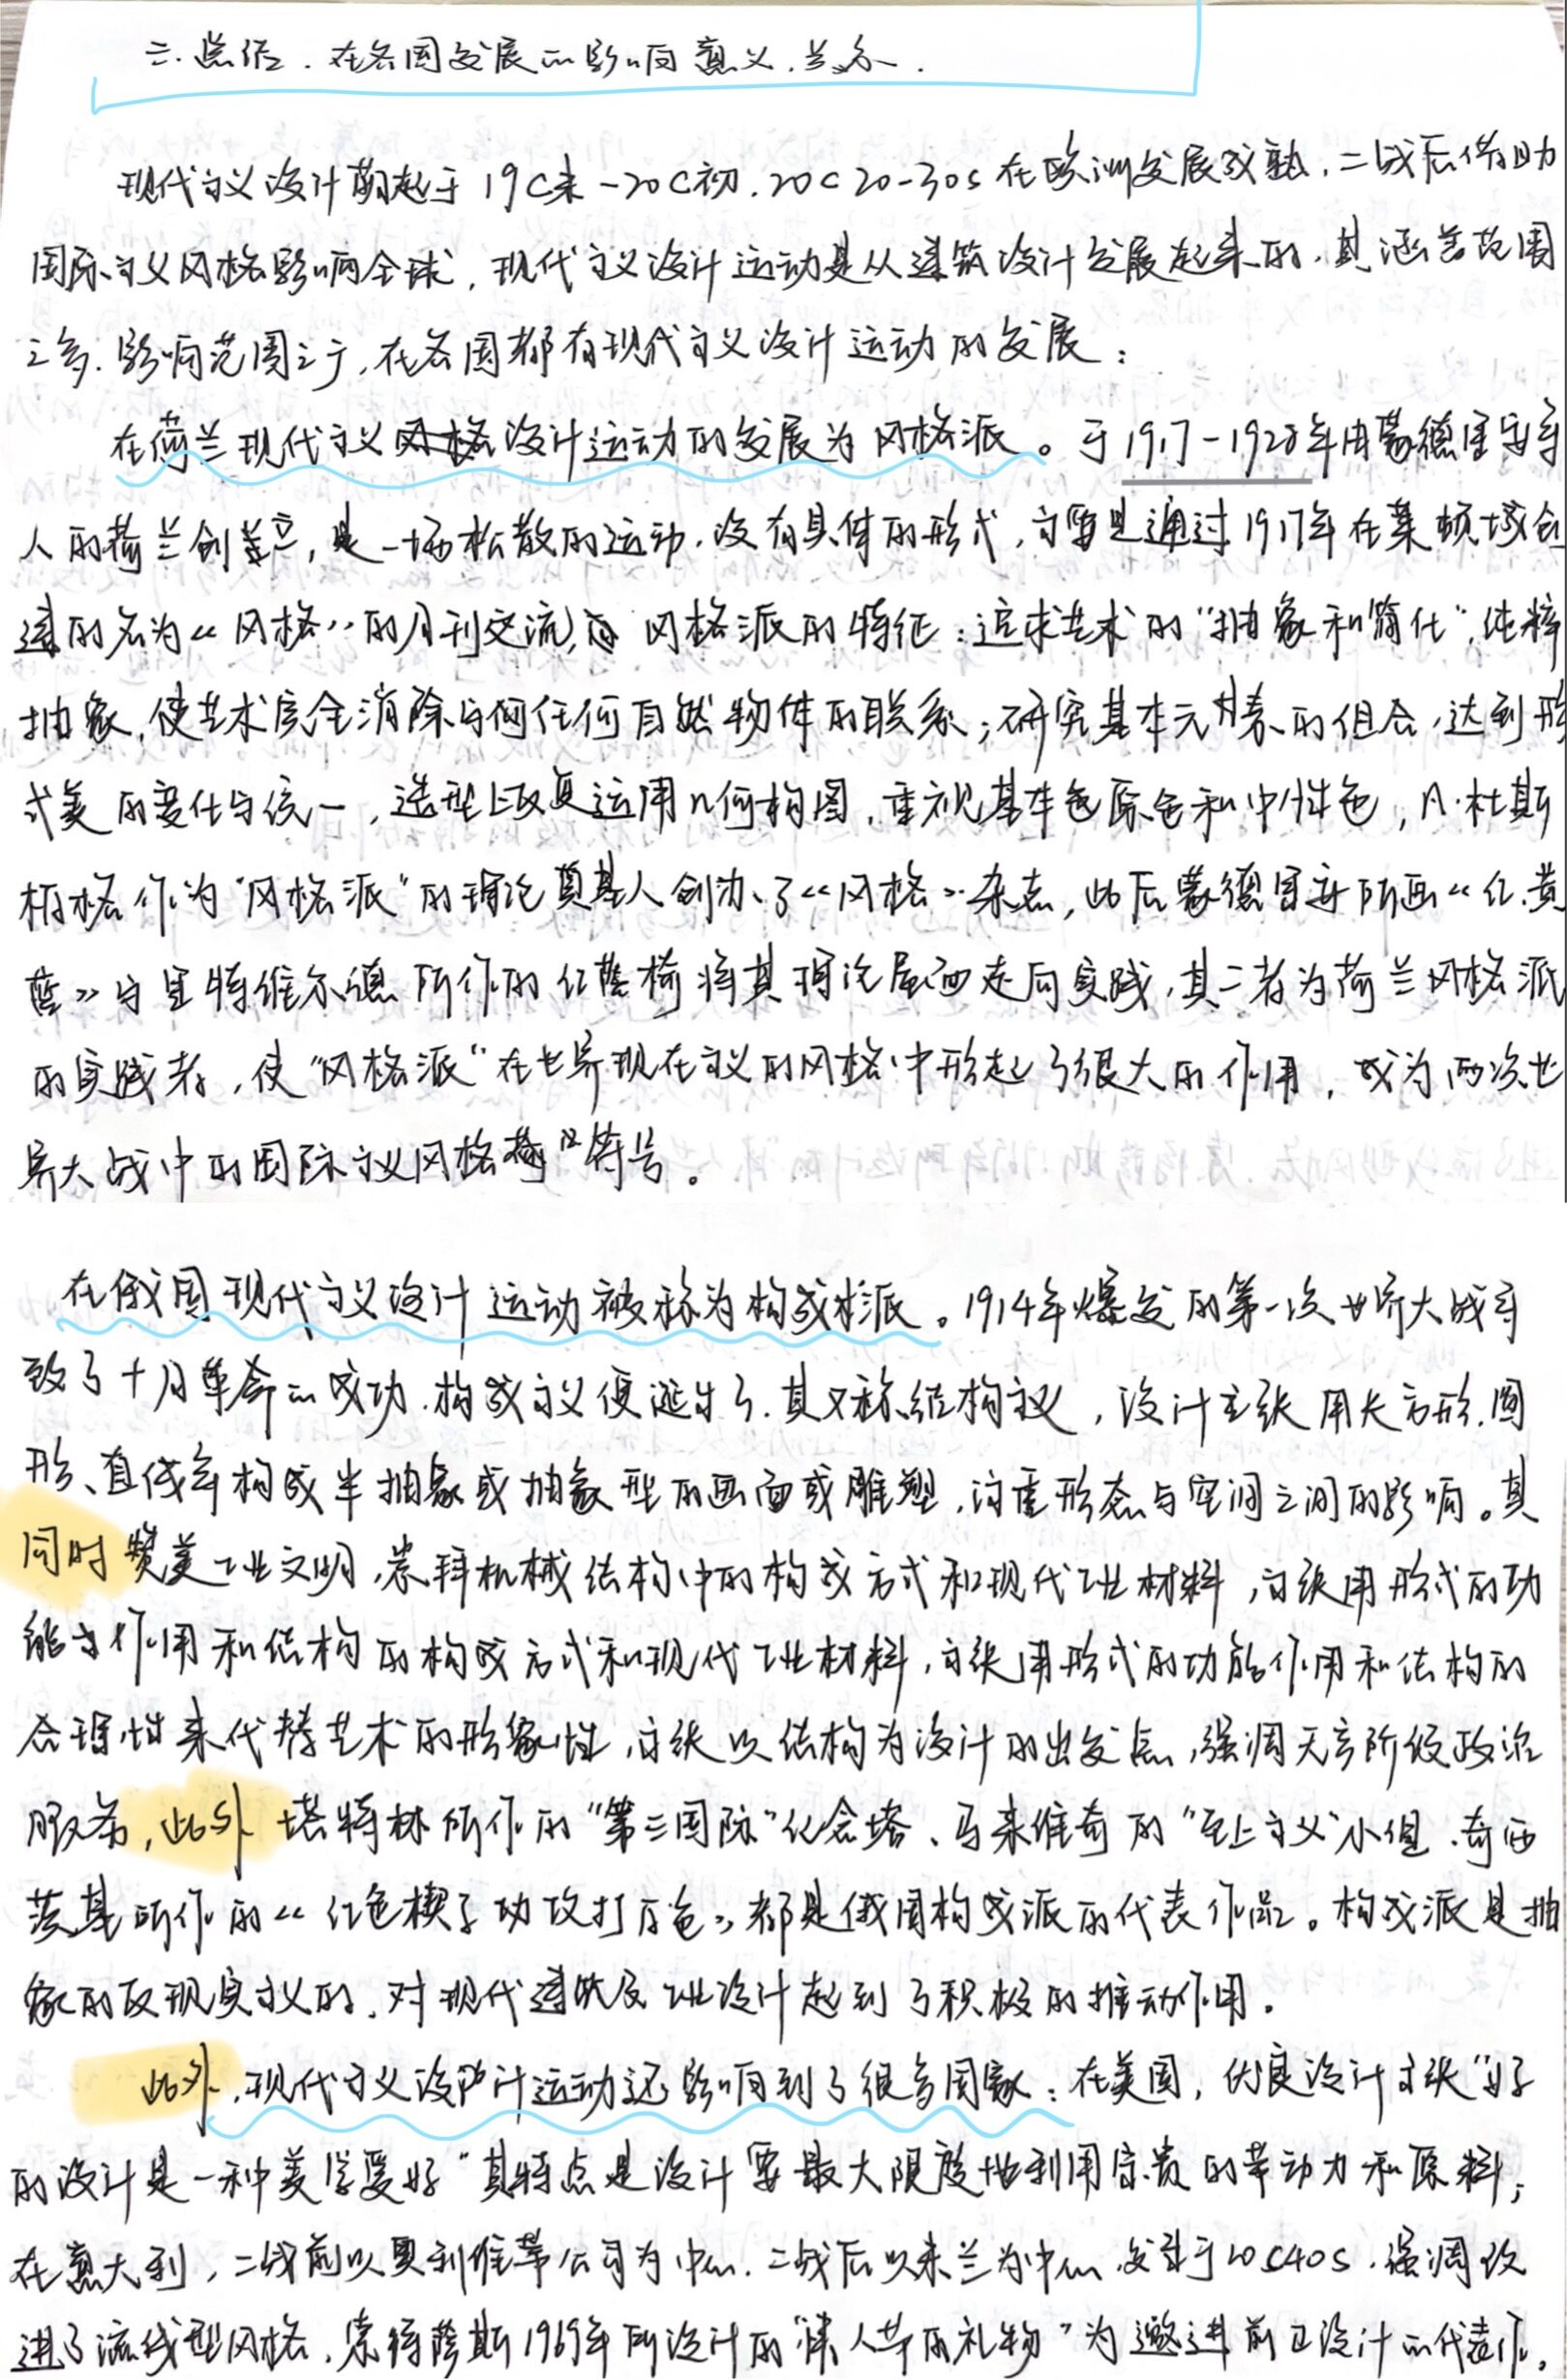 三.总结.在各国发展的影响意义.关系.
现代主义设计萌起于19C末-20C初.20C 20-30s在欧洲发展成熟.二战后借助
国际主义风格影响全球,现代主义设计运动是从建筑设计发展起来的.其涵盖范围
之多.影响范围之广,在各国都有现代主义设计运动的发展:
在荷兰现代主义设计运动的发展为风格派。于1917-1928年由蒙德里安等
人的荷兰创立,是一场松散的运动.没有具体的形式,主要是通过1917年在莱顿城创
建的名为《风格》的月刊交流,风格派的特征:追求艺术的“抽象和简化”,纯粹
抽象,使艺术完全消除与任何自然物体的联系;研究基本元素的组合,达到形
式美的变化与统一,造型上反复运用几何构图,重视基本色原色和中性色,A·杜斯
柏格作为“风格派”的理论奠基人创办了《风格》杂志,此后蒙德里安所画《红.黄
蓝》与里特维尔德所作的红蓝椅将其理论层面走向实践,其二者为荷兰风格派
的实践者,使“风格派”在世界现在主义的风格中形起了很大的作用,成为两次世
界大战中的国际主义风格符号。
在俄国现代主义设计运动被称为构成派。1914年爆发的第一次世界大战导
致了十月革命的成功.构成主义便诞生了.其又称结构主义,设计主张用长方形.圆
形、直线等构成半抽象或抽象型的画面或雕塑,注重形态与空间之间的影响。其
同时赞美工业文明,崇拜机械结构中的构成方式和现代工业材料,主张用形式的功
能作用和结构的构成方式和现代工业材料,主张用形式的功能作用和结构的
合理性来代替艺术的形象性,主张以结构为设计的出发点,强调无产阶级政治
服务,此外塔特林所作的“第三国际”纪念塔、马来维奇的“至上主义”小组.奇西
茨基所作的《红色楔子攻打白色》都是俄国构成派的代表作品。构成派是抽
象的反现实主义的.对现代建筑及工业设计起到了积极的推动作用。
此外.现代主义设计运动还影响到了很多国家:在美国,优良设计主张“好
的设计是一种美学爱好”其特点是设计要最大限度地利用宝贵的劳动力和原料;
在意大利,二战前以奥利维蒂公司为中心.二战后以米兰为中心.发生于20s40s.强调改
进了流线型风格.索特萨斯1969年所设计的“情人节的礼物”为激进前卫设计的代表作。